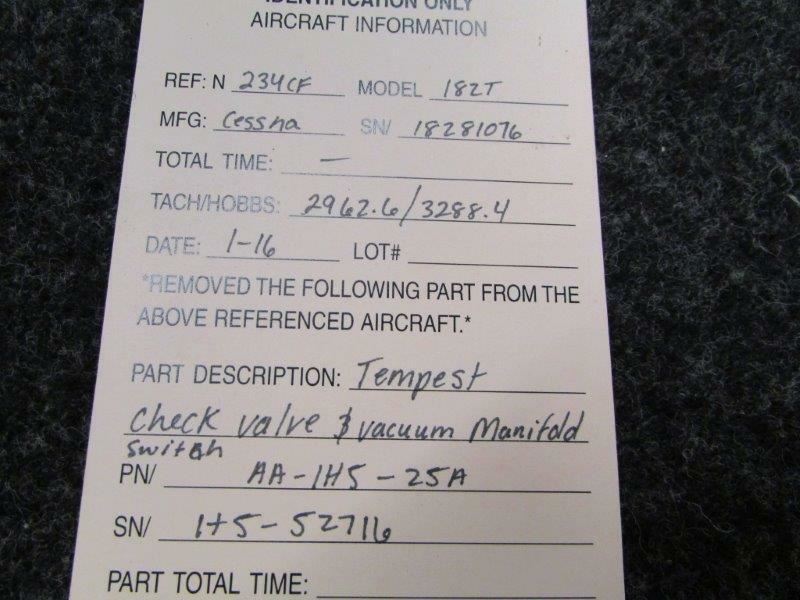 IDENTIFICATION ONLY
AIRCRAFT INFORMATION
REF: N 234CF MODEL 182T
MFG: Cessna SN/ 18281076
TOTAL TIME: —
TACH/HOBBS: 2962.6/3288.4
DATE: 1-16 LOT#
*REMOVED THE FOLLOWING PART FROM THE
ABOVE REFERENCED AIRCRAFT.*
PART DESCRIPTION: Tempest
check valve & vacuum Manifold
switch
PN/ AA-1H5-25A
SN/ 1H5-52716
PART TOTAL TIME: